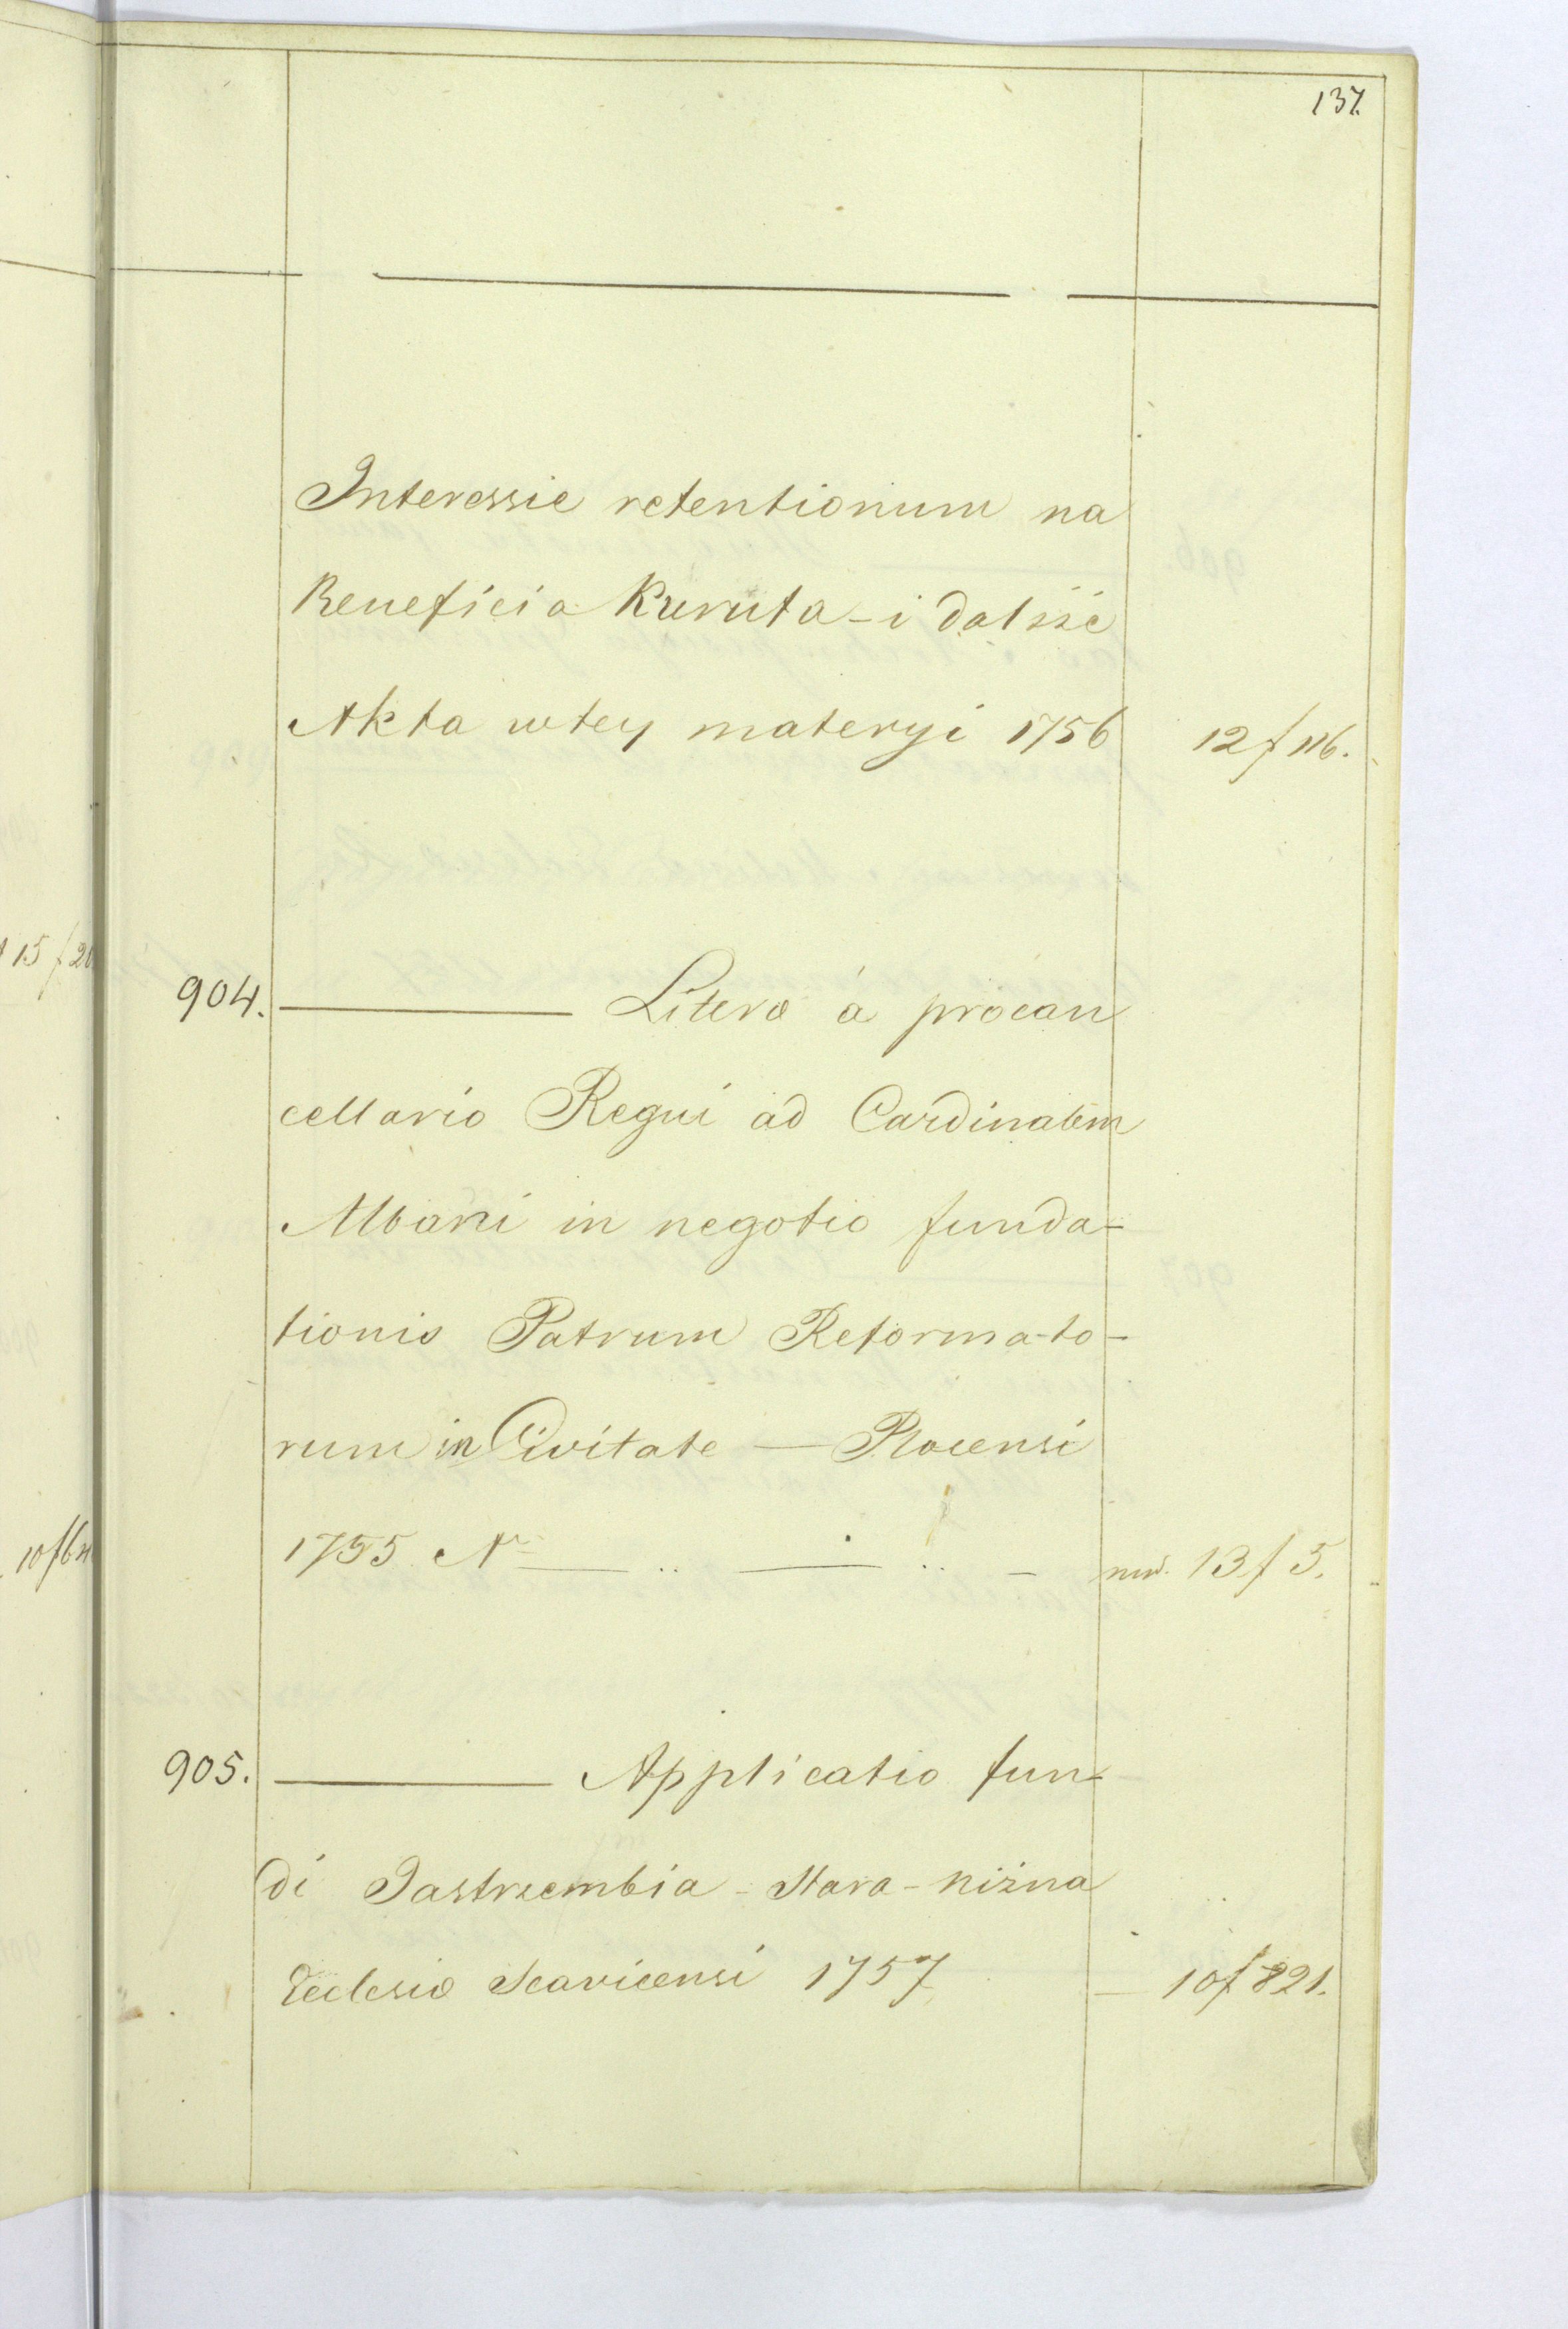 137.
Interessie retentionum na
Beneficia Kuruta - i dalsze
Akta wtey materyi 1756 12 f 116.
904. Literæ à procan
cellario Regni ad Cardinalem
Albani in negotio funda-
tionis Patrum Reformato-
rum in Civitate — Plocensi
1755 Nr nw. 13 f 5.
905. Applicatio fun-
di Jastrzembia - Stara - niżna
Ecclesiæ Scavicensi 1757 — 10 f 821.